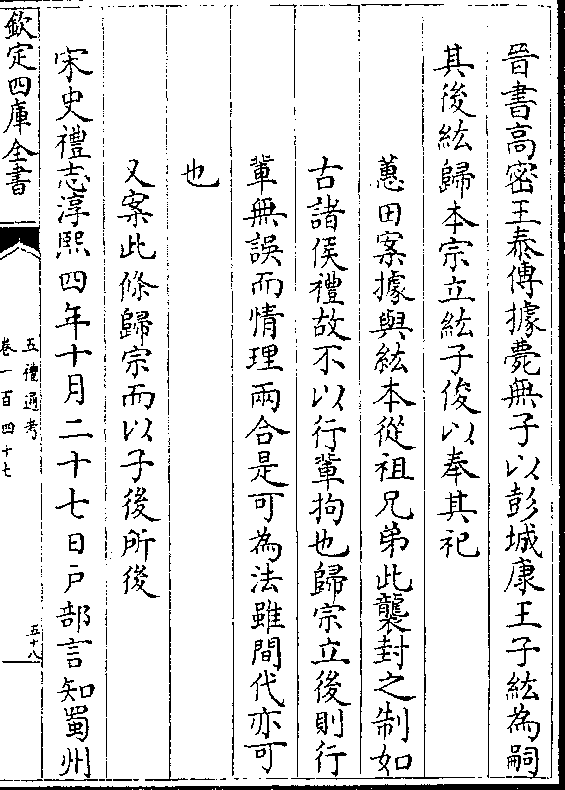 晉書高密王泰傳據薨無子以彭城康王子紘為嗣
其後紘歸本宗立紘子俊以奉其祀
蕙田案據與紘本從祖兄弟此襲封之制如
古諸侯禮故不以行輩拘也歸宗立後則行
輩無誤而情理兩合是可為法雖間代亦可
也
又案此條歸宗而以子後所後
宋史禮志淳熙四年十月二十七日戶部言知蜀州
欽定四庫全書
五禮通考
卷一百四十七
五十八